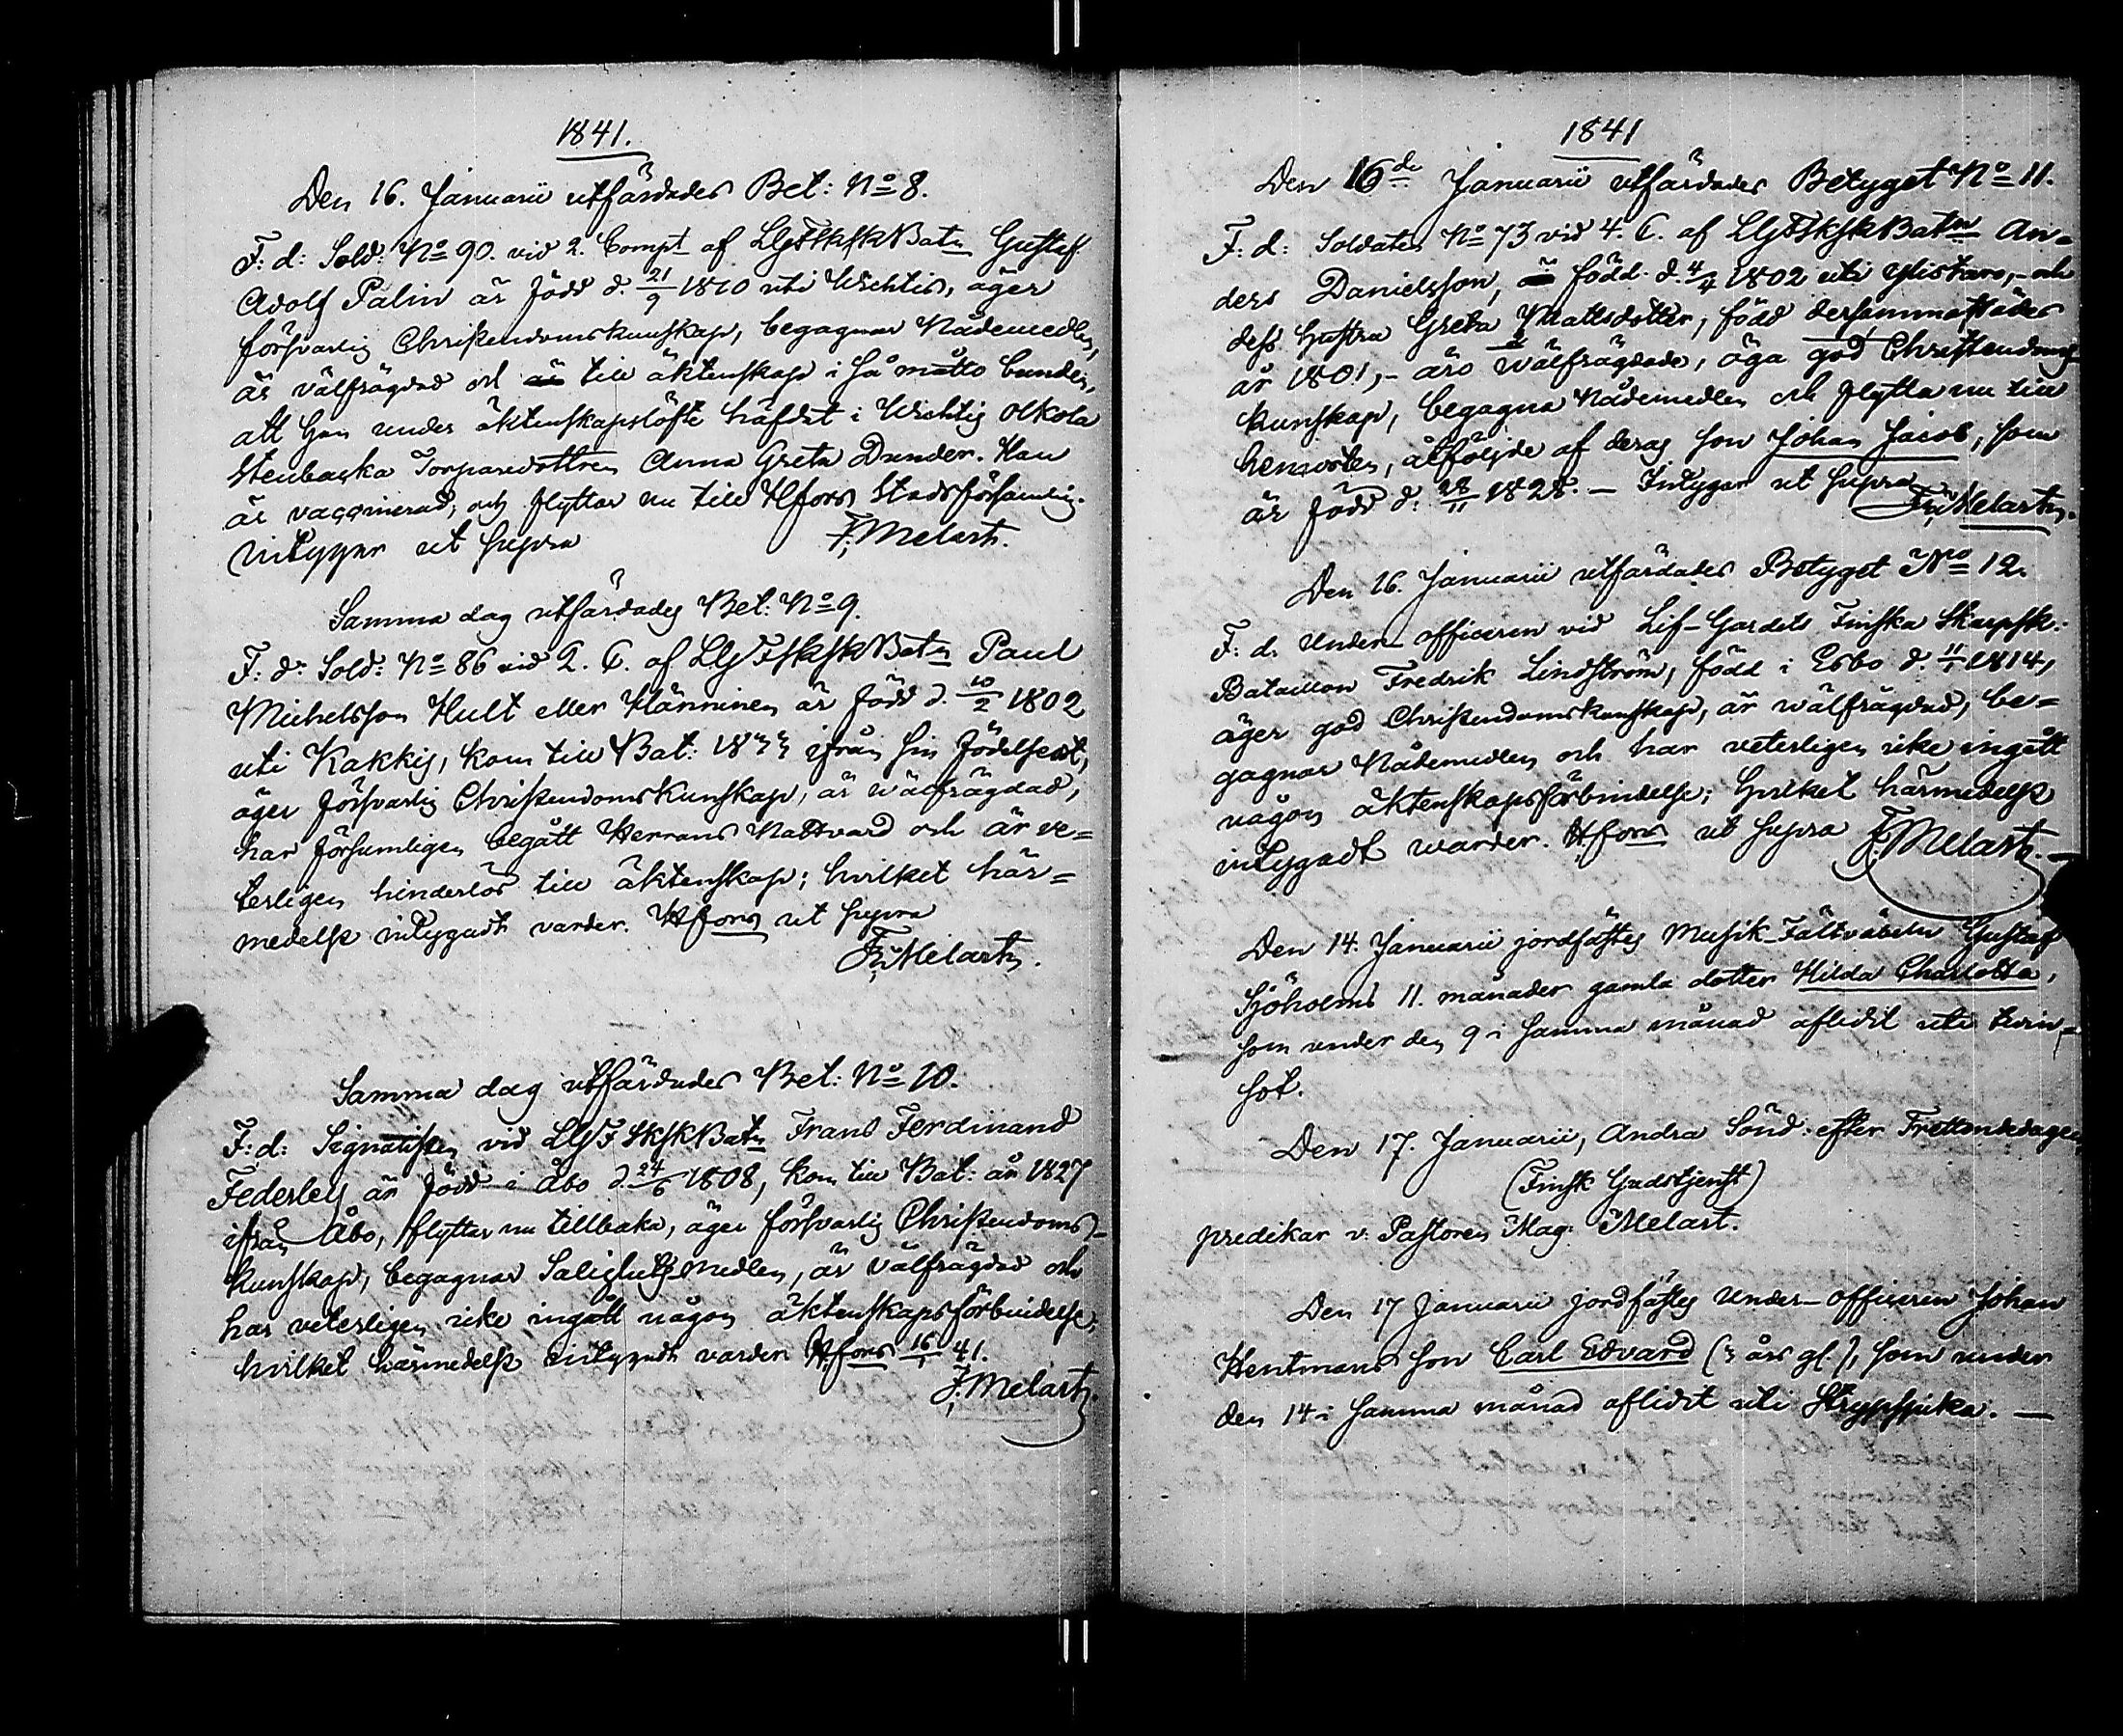 1841.
Den 16. Januarii utfärdades Bet: No 8.
F: d: Sold: No 90. vid 2. Compt af LGFSkSkBatn Gustef
Adolf Palin är född d. 21/9 1810 uti Wichtis, äger
försvarlig Christendomskunskap, begagnar Nådemedlen,
är välfrägdad och till äktenskap i så måtto bunden,
att han under äktenskapslöfte häfdat i Wichtis Olkola
Stenbacka Torparedottren Anna Greta Dunder. Han
är vaccinerad, och flyttar nu till Hfors Stadsförsamling.
Intygar ut supra F. Melart.
Samma dag utfärdades Bet: No 9.
F: d: Sold: No 86 vid 2. C. af LGFSkSkBatn Paul
Michelsson Hult eller Hänninen är född d. 10/2 1802
uti Kakkis, kom till Bat: 1833 ifrån sin födelseort,
äger försvarlig Christendomskunskap, är wälfrägdad,
har försumligen begått Herrans Nattvard och är ve=
terligen hinderlös till äktenskap; hvilket här=
medelst intygadt varder. Hfors ut supra
F. Melart.
Samma dag utfärdades Bet: No 10.
F: d: Signatisten vid LGFSkSkBatn Frans Ferdinand
Federley är född i Åbo d. 24/6 1808, kom till Bat: år 1827
ifrån Åbo, flyttar nu tillbaka, äger försvarlig Christendoms-
kunskap, begagnar Salighetsmedlen, är välfrägdad och
har veterligen icke ingått någon äktenskapsförbindelse,
hvilket härmedelst intygadt varder Hfors 16/1 41.
F. Melart.
1841
Den 16de Januarii utfärdades Betyget No 11.
F: d: Soldaten No 73 vid 4. C. af LGFSkSkBatn An=
ders Danielsson, född d. 4/4 1802 uti Ylistaro, och
dess hustru Greta Mattsdotter, född dersammastädes
år 1801, - äro wälfrägdade, äga god Christendoms-
kunskap, begagna Nådemedlen och flytta nu till
hemorten, åtföljde af deras son Johan Jacob, som
är född d. 28/11 1828. - Intygar ut supra F. Melart.
Den 16. Januarii utfärdades Betyget No 12.
F: d. Under-officeren vid Lif-Gardets Finska Skarpsk:
Bataillon Fredrik Lindström, född i Esbo d. 11/1 1814,
äger god Christendomskunskap, är wälfrägdad, be=
gagnar Nådemedlen och har veterligen icke ingått
någon äktenskapsförbindelse; hvilket härmedelst
intygadt warder. Hfors ut supra F. Melart. -
Den 14. Januarii jordfästes Musik-Fältväbeln Gustaf
Sjöholms 11. månader gamla dotter Hilda Charlotta,
som under den 9 i samma månad aflidit uti tvin-
sot.
Den 17. Januarii, Andra Sönd: efter Trettondedagen
(Finsk Gudstjenst)
predikar v: Pastoren Mag: Melart.
Den 17 Januarii jordfästes Under-officeren Johan
Hentmans son Carl Edvard (3 års gl.), som under
den 14 i samma månad aflidit uti Strypsjuka. -